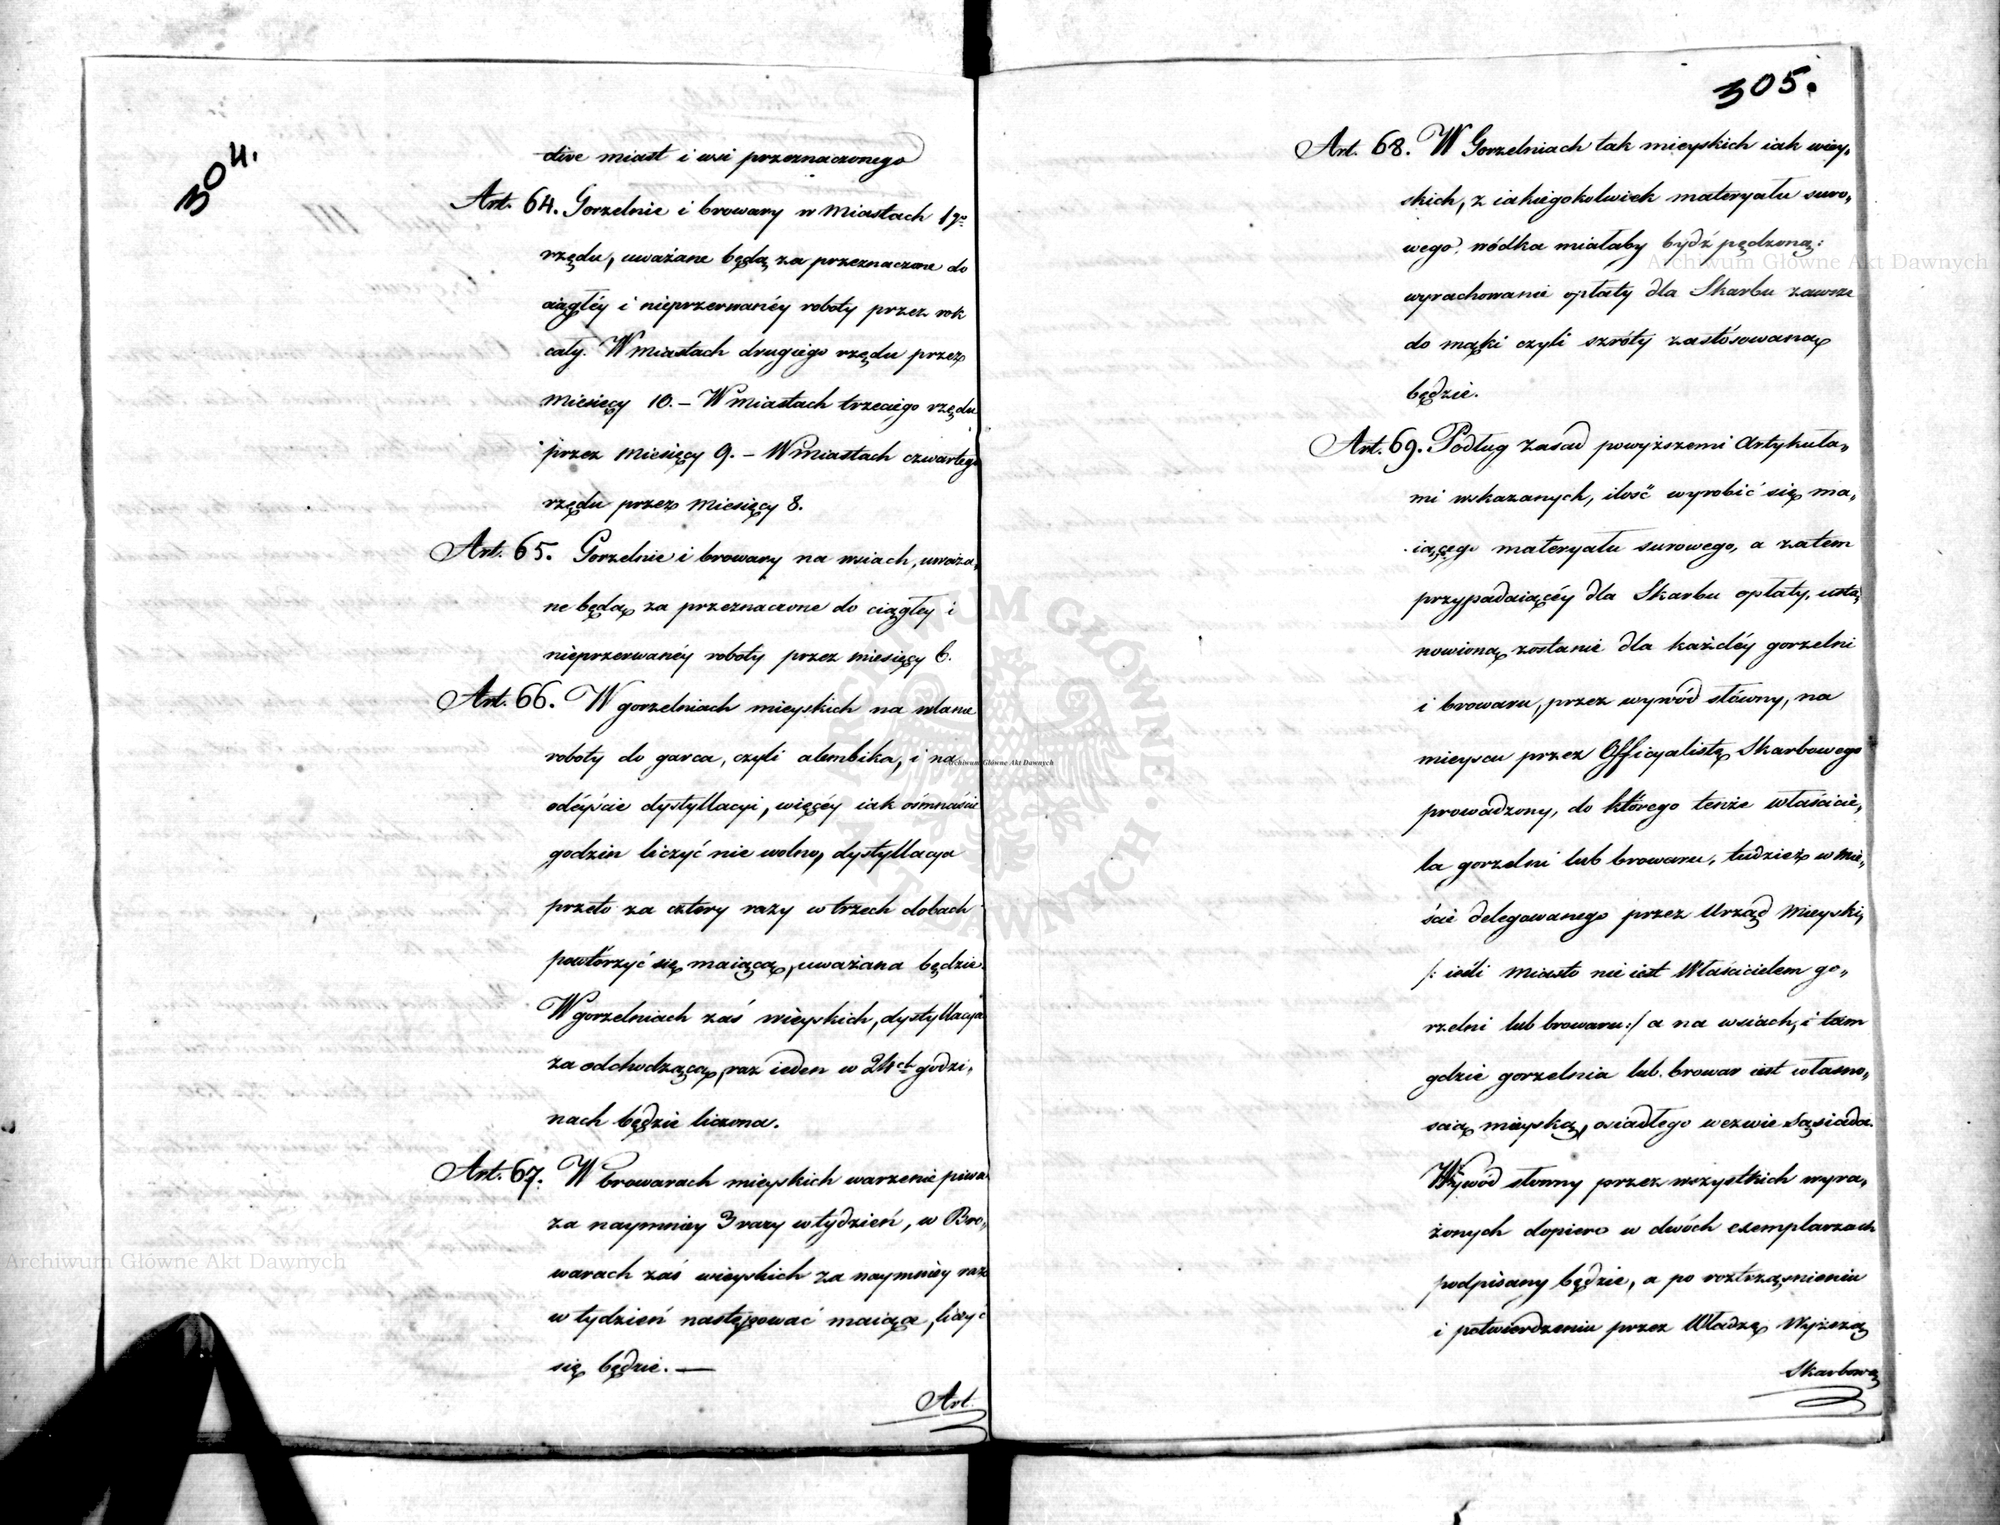 304.
ctive miast i wsi przeznaczonego
Art. 64. Gorzelnie i browary w Miastach 1go
rzędu, uważane będą za przeznaczone do
ciągłéy i nieprzerwanéy roboty przez rok
cały. W miastach drugiego rzędu przez
Miesięcy 10. – W miastach trzeciego rzędu
przez Miesięcy 9. – W miastach czwartego
rzędu przez Miesięcy 8.
Art. 65. Gorzelnie i browary na wsiach, uważa„
ne będą za przeznaczone do ciągłey i
nieprzerwanéy roboty przez miesięcy 6.
Art. 66. W gorzelniach mieyskich na wlanie
roboty do garca, czyli alembika, i na
odéyście dystyllacyi, więcéy iak ośmnaście
godzin liczyć nie wolno, dystyllacya
przeto za cztery razy w trzech dobach
powtórzyć się maiącą, uważana będzie.
W gorzelniach zaś wieyskich, dystyllacya
za odchodzącą, raz ieden w 24ch godzi„
nach będzie liczona.
Art. 67. W browarach mieyskich warzenie piwa
za naymniey 3 razy w tydzień, w Bro„
warach zaś wieyskich za naymniey raz
w tydzień następować maiące, liczyć
się będzie. —
Art.
305.
Art. 68. W Gorzelniach tak mieyskich iak wiey„
skich, z iakiegokolwiek materyału suro„
wego, wódka miałaby bydź pędzoną:
wyrachowanie opłaty dla Skarbu zawsze
do mąki czyli szróty zastósowaną
będzie.
Art. 69. Podług zasad powyższemi Artykuła„
mi wskazanych, ilość wyrobić się ma„
iącego materyału surowego, a zatem
przypadaiącéy dla Skarbu opłaty, usta„
nowioną zostanie dla każdéy gorzelni
i browaru, przez wywód słówny, na
mieyscu przez Officyalistę Skarbowego
prowadzony, do którego tenże właścicie„
la gorzelni lub browaru, tudzież w mie„
ście delegowanego przez Urząd Mieyski,
/: ieśli Miasto nie iest Właścicielem go„
rzelni lub browaru :/ a na wsiach, i tam
gdzie gorzelnia lub browar iest własno„
scią mieyską, osiadłego wezwie Sąsiada.
Wywód słowny przez wszystkich wyra„
żonych dopiero w dwóch exemplarzach
podpisany będzie, a po roztrząśnieniu
i potwierdzeniu przez Władzę Wyższą
Skarbową
Archiwum Główne Akt Dawnych
Archiwum Główne Akt Dawnych
Archiwum Główne Akt Dawnych
ARCHIWUM GŁÓWNE · AKT DAWNYCH ·